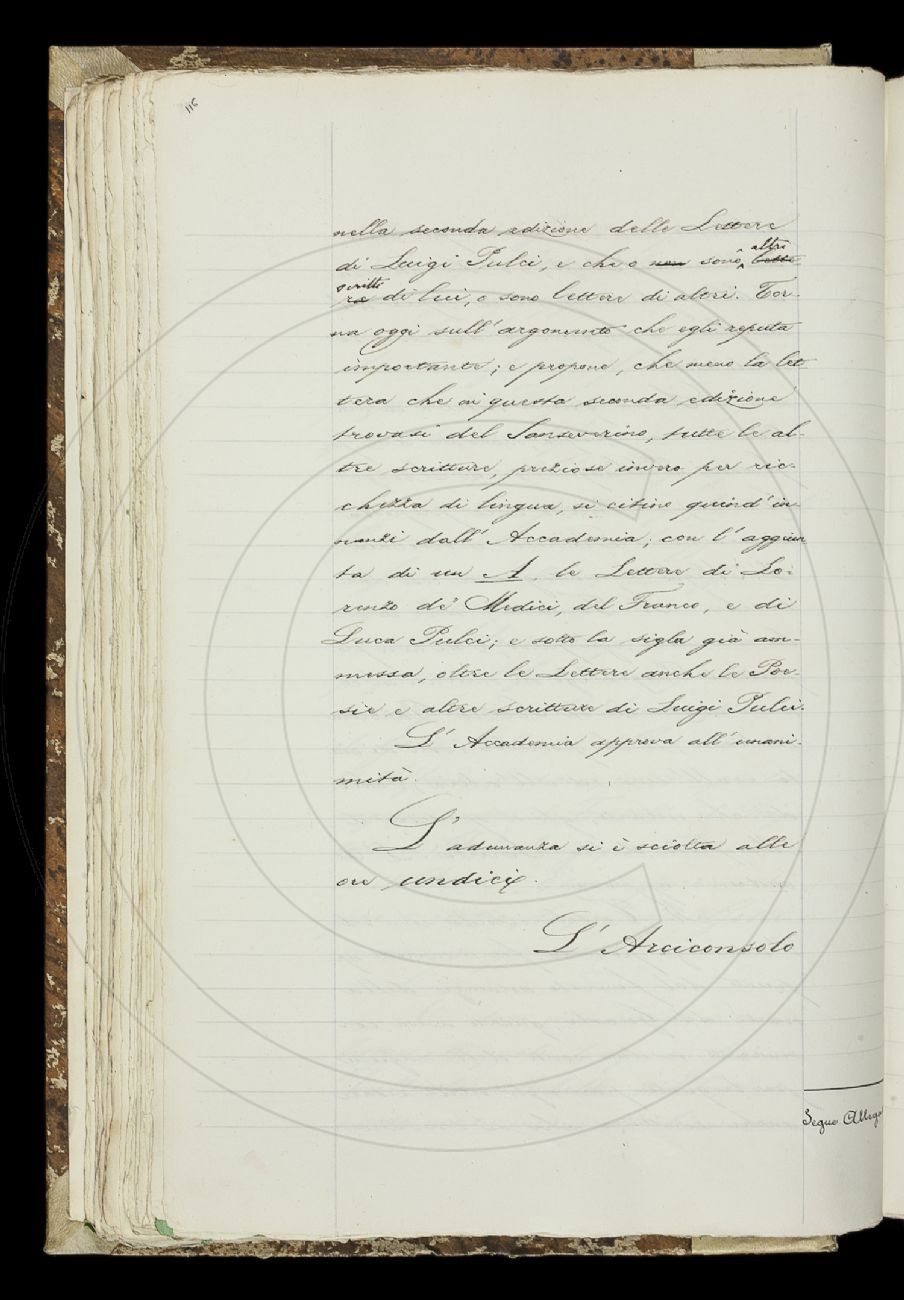 115
nella seconda edizione delle Lettere
di Luigi Pulci, e che o non sono altri lette
scritti
re di lui, o sono lettere di altri. Tor-
na oggi sull'argomento che egli reputa
importante; e propone, che meno la let
tera che in questa seconda edizione
trovasi del Sanseverino, tutte le al-
tre scritture, preziose invero per ric-
chezza di lingua, si citino quind'in
nanzi dall'Accademia; con l'aggiun
ta di un A, le Lettere di Lo-
renzo de' Medici, del Franco, e di
Luca Pulci; e sotto la sigla già am-
messa, oltre le Lettere anche le Poe-
sie e altre scritture di Luigi Pulci.
L'Accademia approva all'unani-
mità.
L'adunanza si è sciolta alle
ore undici.
L'Arciconsolo
Segue Allega